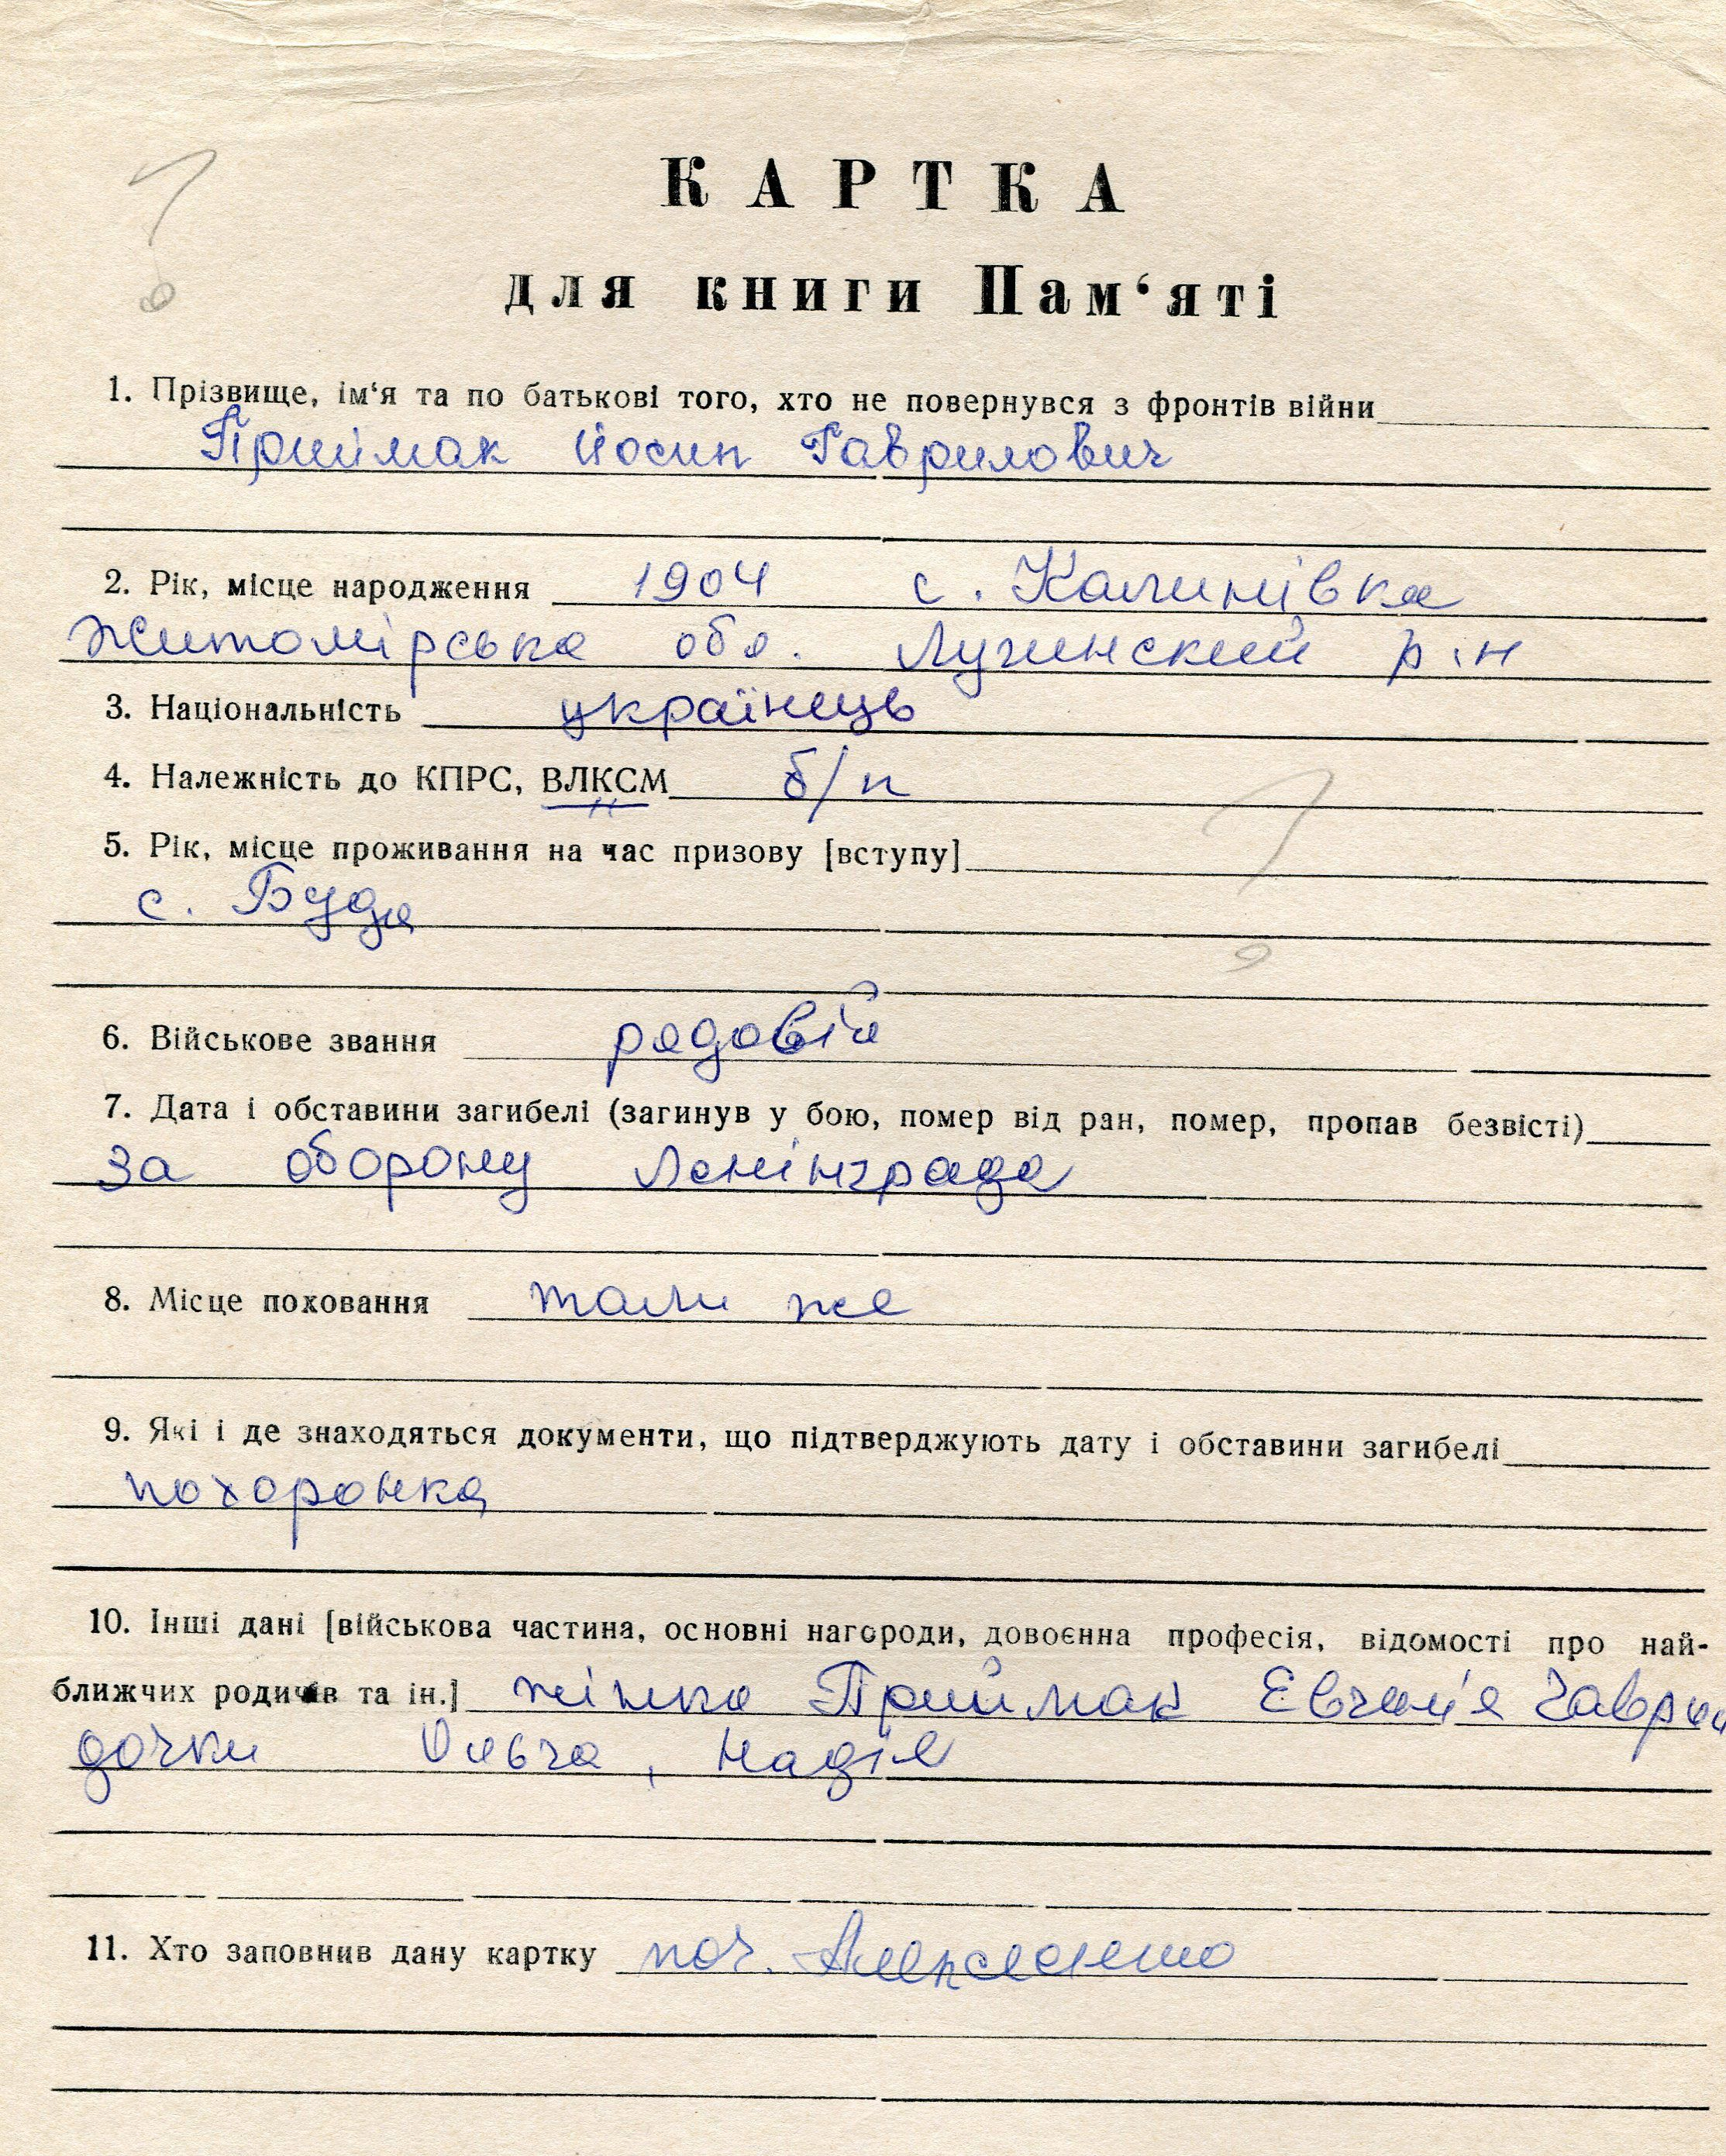 КАРТКА
для книги Пам‘яті
1. Прізвище, ім‘я та по батькові того, хто не повернувся з фронтів війни
Приймак Йосип Гаврилович
2. Рік, місце народження 1904 с. Калинівка
Житомірська обл. Лугинский р.н
3. Національність українець
4. Належність до КПРС, ВЛКСМ б/п
5. Рік, місце проживання на час призову [вступу]
с. Буда
6. Військове звання рядовій
7. Дата і обставини загибелі (загинув у бою, помер від ран, помер, пропав безвісті)
за оборону Ленінграда
8. Місце поховання там же
9. Які і де знаходяться документи, що підтверджують дату і обставини загибелі
похоронка
10. Інші дані [військова частина, основні нагороди, довоєнна професія, відомості про най-
ближчих родичів та ін.] жінка Приймак Евгенія Гаври
дочки Ольга, Надія
11. Хто заповнив дану картку